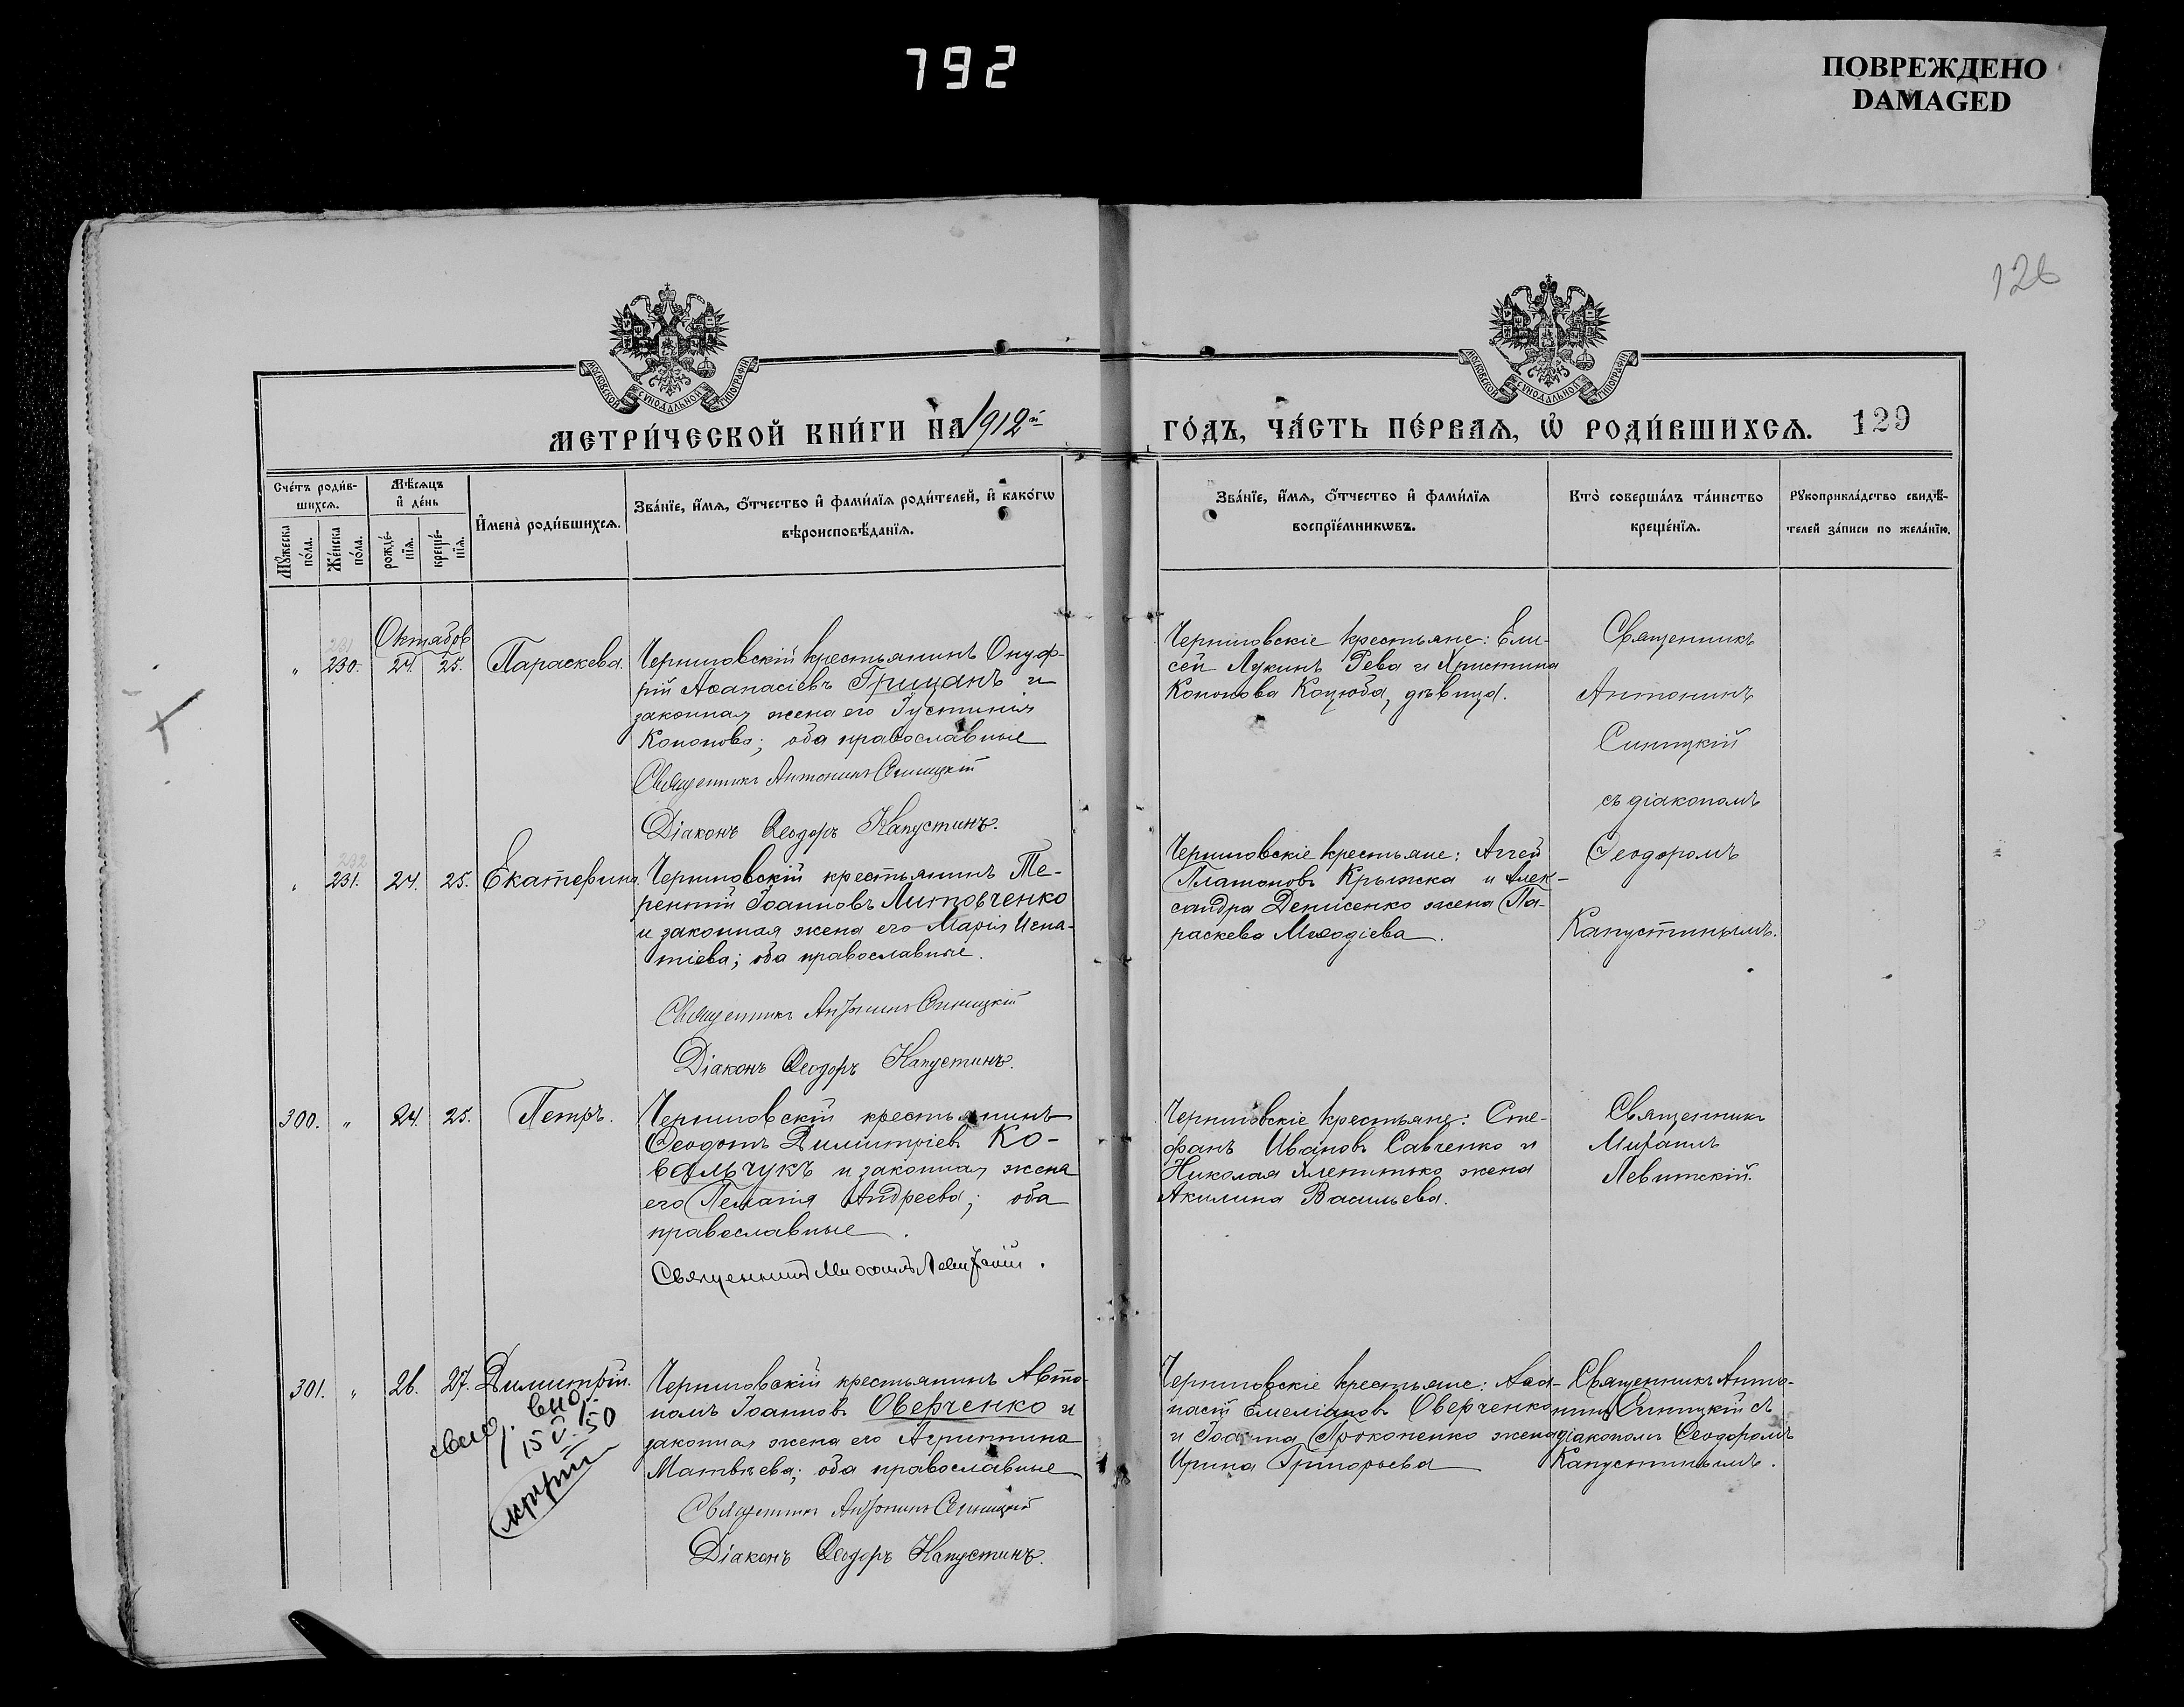 792
ПОВРЕЖДЕНО
DAMAGED
126
МОСКОВСКОЙ СѴНОДАЛЬНОЙ ТИПОГРАФІИ
МОСКОВСКОЙ СѴНОДАЛЬНОЙ ТИПОГРАФІИ
МЕТРИ́ЧЕСКОЙ КНИ́ГИ НА 1912й
ГО́ДЪ, ЧА́СТЬ ПЕ́РВАѦ, Ѡ҆ РОДИ́ВШИХСѦ. 129
Сче́тъ роди́в-
шихсѧ.
Мꙋ́жеска по́ла.
Же́нска по́ла.
Мѣ́сѧцъ
и҆ де́нь
рожде́-
нїѧ.
креще́-
нїѧ.
И҆мена̀ роди́вшихсѧ.
Зва́нїе, и҆́мѧ, ѻ҆́тчество и҆ фами́лїѧ роди́телей, и҆ како́гѡ
вѣроисповѣ́данїѧ.
Зва́нїе, и҆́мѧ, ѻ҆́тчество и҆ фами́лїѧ
воспрїе́мникѡвъ.
Кто̀ соверша́лъ та́инство
креще́нїѧ.
Рꙋкоприкла́дство свидѣ́-
телей за́писи по жела́нїю.
Октябрь
231
" 230. 24. 25. Параскева.
Черниговскій крестьянинъ Онуф-
рій Аѳанасіевъ Грицанъ и
законная жена его Іустинія
Кононова; оба православные
Священникъ Антонинъ Синицкій
Діаконъ Ѳеодоръ Капустинъ.
Елисей Лукинъ Рева и Христина
Кононова Коцюба, дѣвица.
Священникъ
Антонинъ
Синицкій
съ діакономъ
Ѳеодоромъ
Капустинымъ.
232
" 231. 24. 25. Екатерина.
крестьянинъ Те-
рентій Іоанновъ Литовченко
и законная жена его Марія Игна-
тіева; оба православные.
Священникъ Антонинъ Синицкій
Діаконъ Ѳеодоръ Капустинъ.
крестьяне: Аггей
Платоновъ Крыжка и Алек-
сандра Денисенко жена Па-
раскева Меѳодіева.
300. " 24. 25. Петръ.
крестьянинъ
Ѳеодотъ Димитріевъ Ко-
вальчукъ и законная жена
его Пелагія Андреева; оба
православные.
Священникъ Михаилъ Левитскій.
крестьяне: Сте-
фанъ Ивановъ Савченко и
Николая жена
Акилина Васильева.
Священникъ
Михаилъ
Левитскій.
301. " 26. 27. Димитрій.
15 V 50
крестьянинъ Авто-
номъ Іоанновъ Оверченко и
законная жена его Агриппина
Матвѣева; оба православные
Священникъ Антонинъ Синицкій
Діаконъ Ѳеодоръ Капустинъ.
крестьяне: Аѳа-
насій Емеліановъ Оверченко
и Іоанна Прокопенко жена
Ирина Григорьева
Священникъ Анто-
нинъ Синицкій съ
діакономъ Ѳеодоромъ
Капустинымъ.